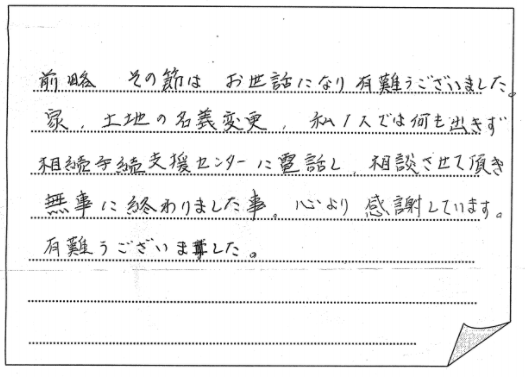 前略　その節は　お世話になり有難うございました。
家、土地の名義変更、私1人では何も出きず
相続手続支援センターに電話し、相談させて頂き
無事に終わりました事、心より感謝しています。
有難うございました。